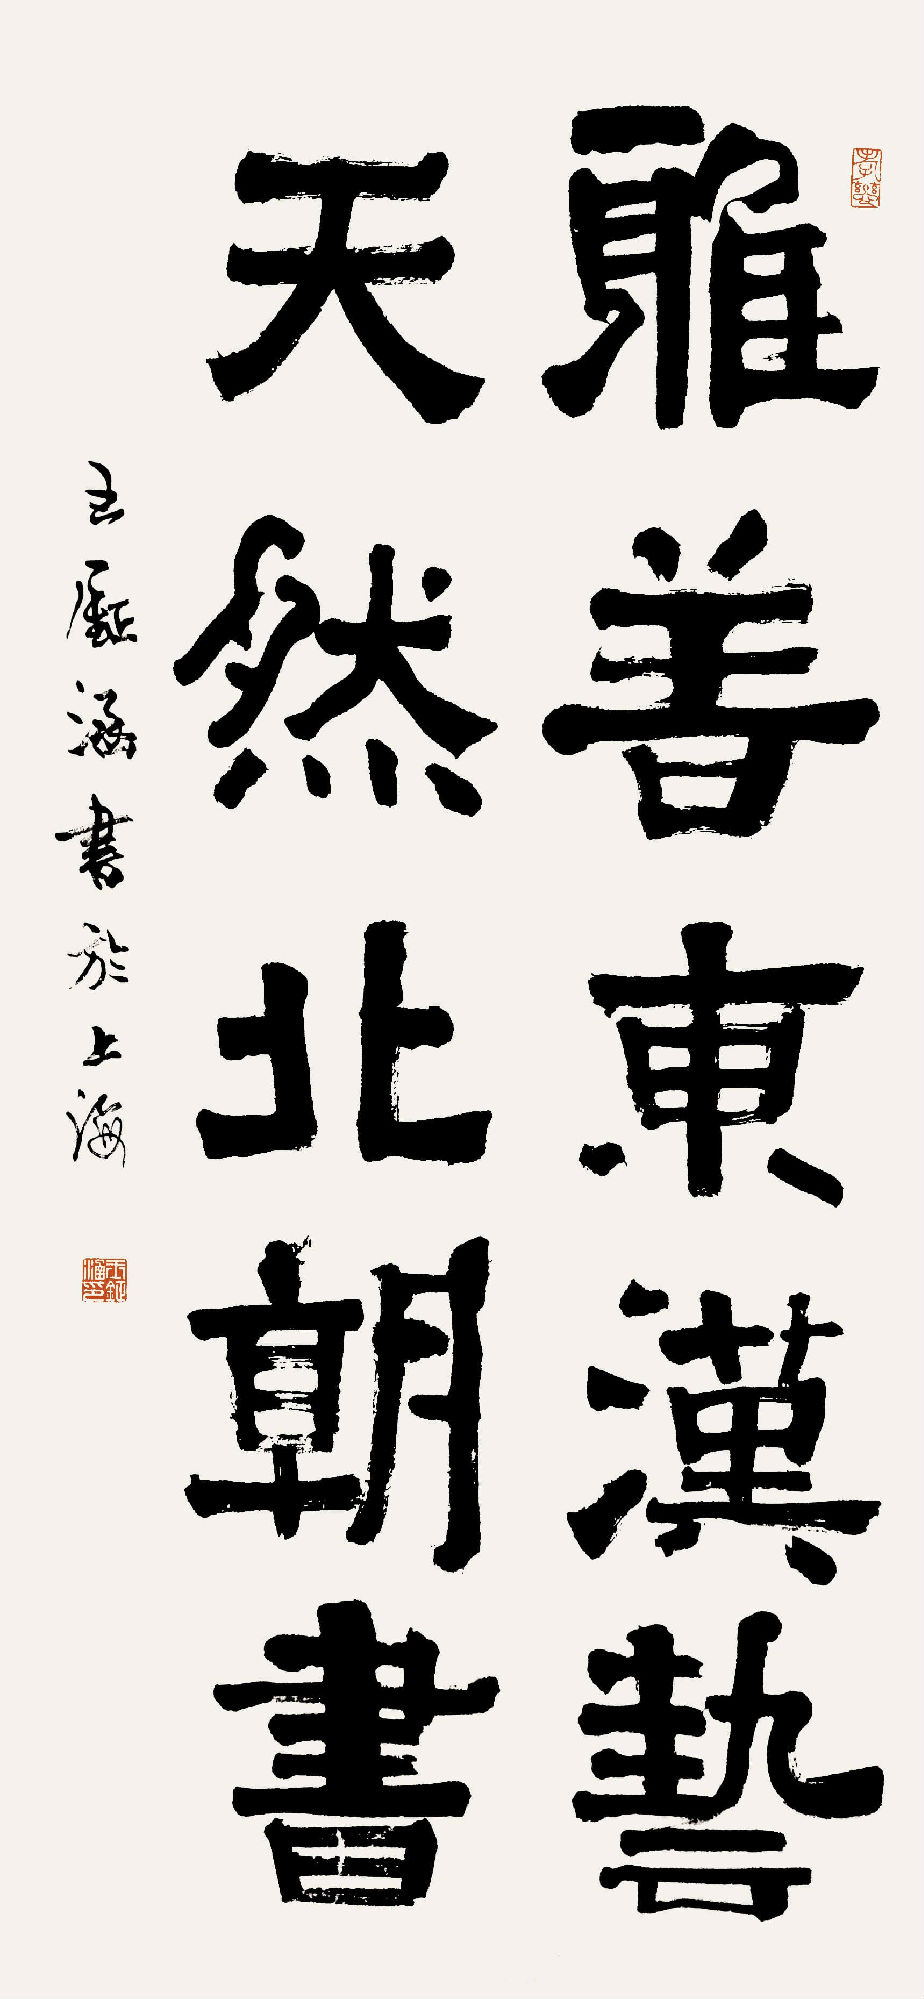 雅善東漢藝
天然北朝書
王壓涵書於上海